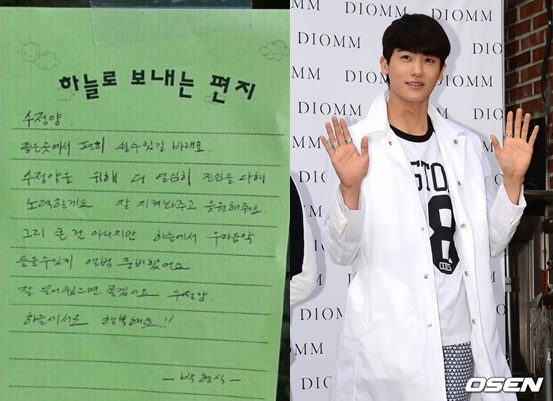 하늘로 보내는 편지
수정양
좋은곳에서 편히 쉴수있길 바래요
수정양을 위해 더 열심히 진심을 다해
노력할게요 잘 지켜봐주고 응원해줘요
그리 큰 건 아니지만 하늘에서 우리음악
들을수있게 앨범 준비했어요
잘 들어줬으면 좋겠어요 수정양
하늘에서도 행복해요!!
-박형식-
DIOMM
DIOMM
DIOMM
DIOMM
DIOMM
DIOMM
DIOMM
DIOMM
STO
8
OSEN